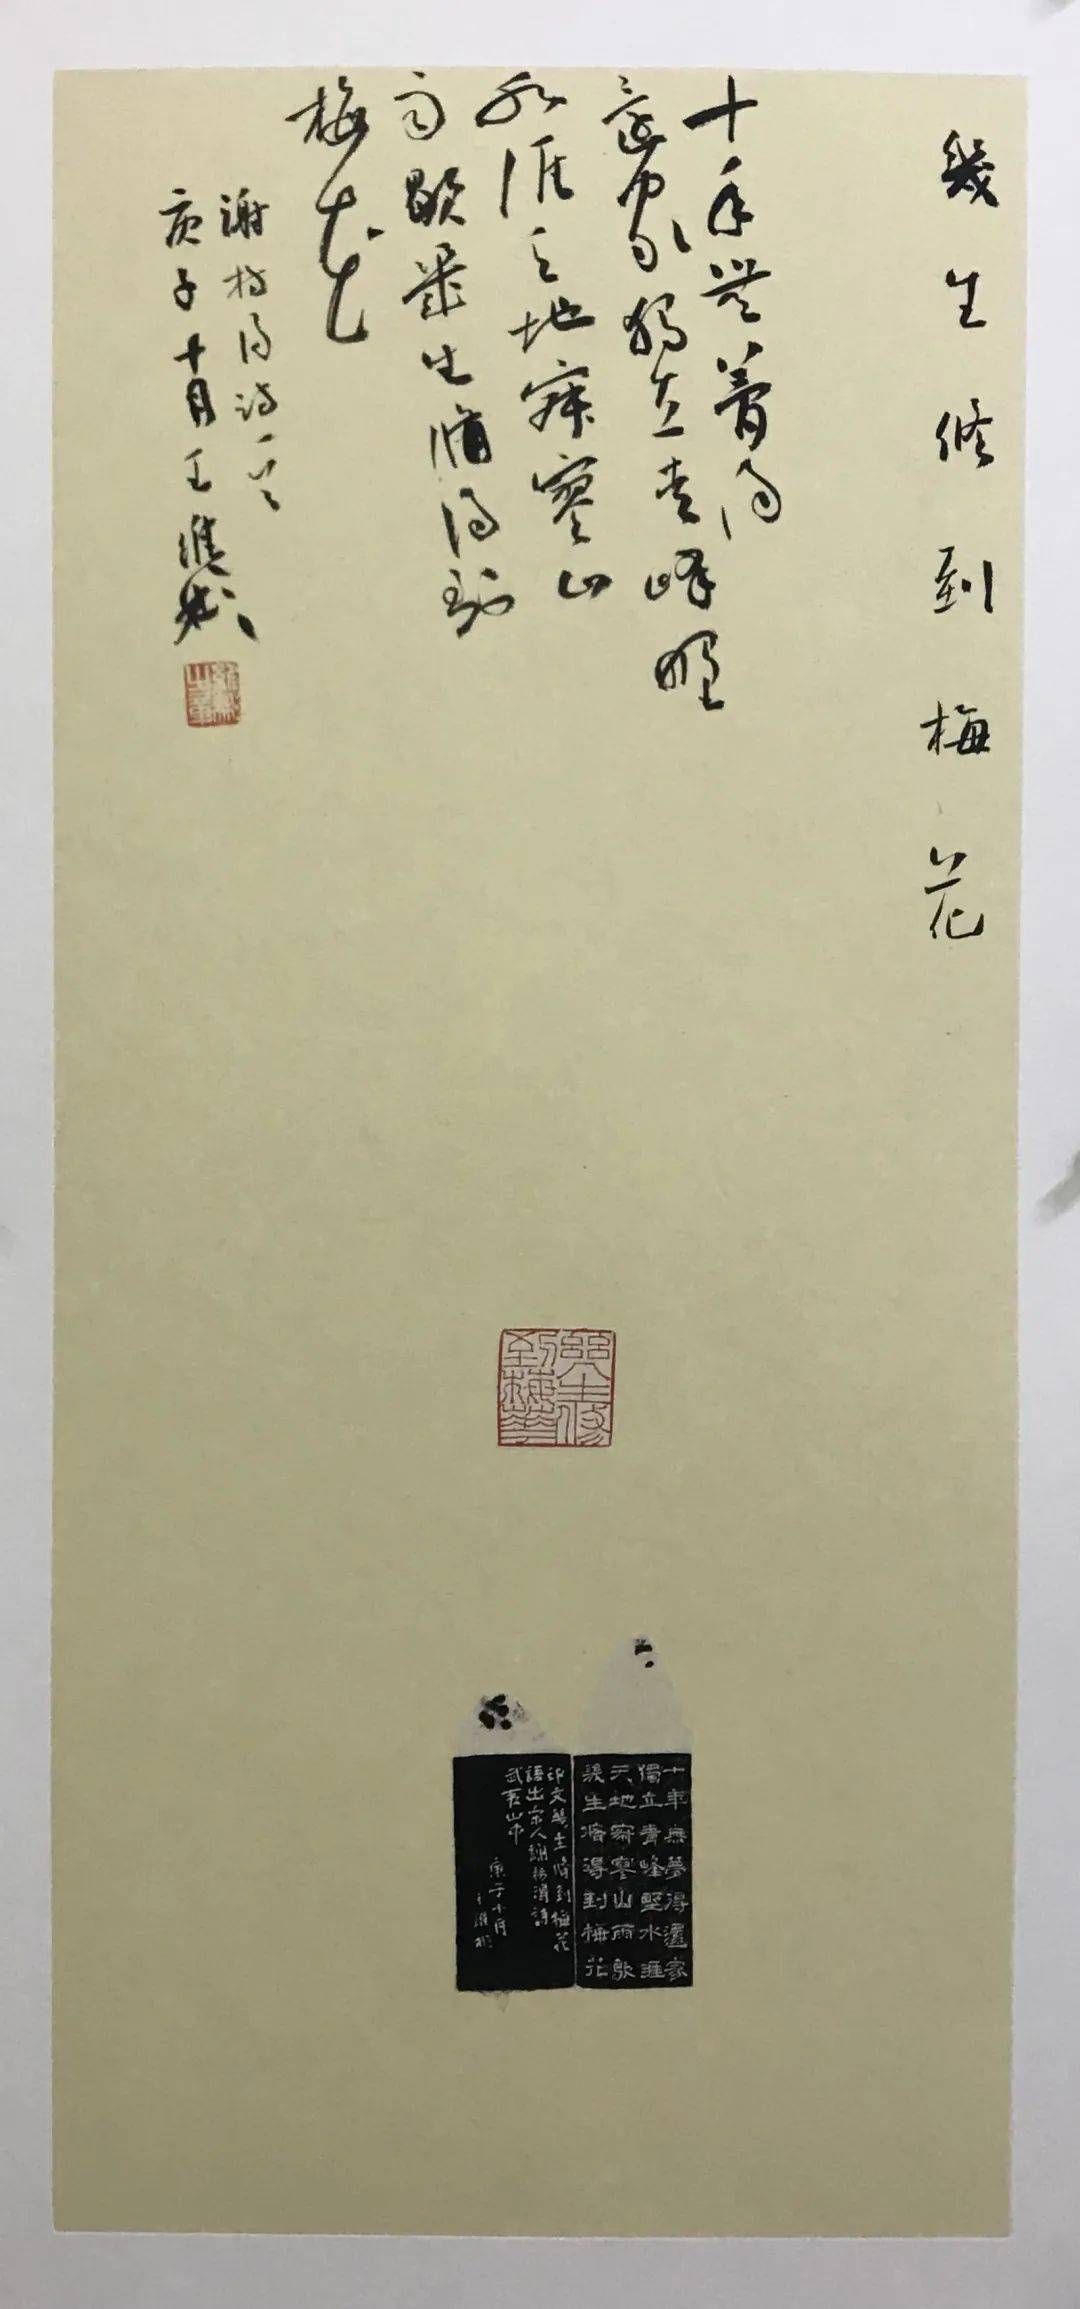 幾生修到梅花
十年無夢得
還家獨立青峰野
水涯天地寂寥山
雨歇幾生脩得到
梅花
谢枋得诗一首
庚子十月王維
幾生修
到梅華
十年無夢得還家
獨立青峰野水涯
天地寂寥山雨歇
幾生脩得到梅花
印文幾生脩到梅花
語出宋人謝枋得詩
武夷山中
庚子十月
王維